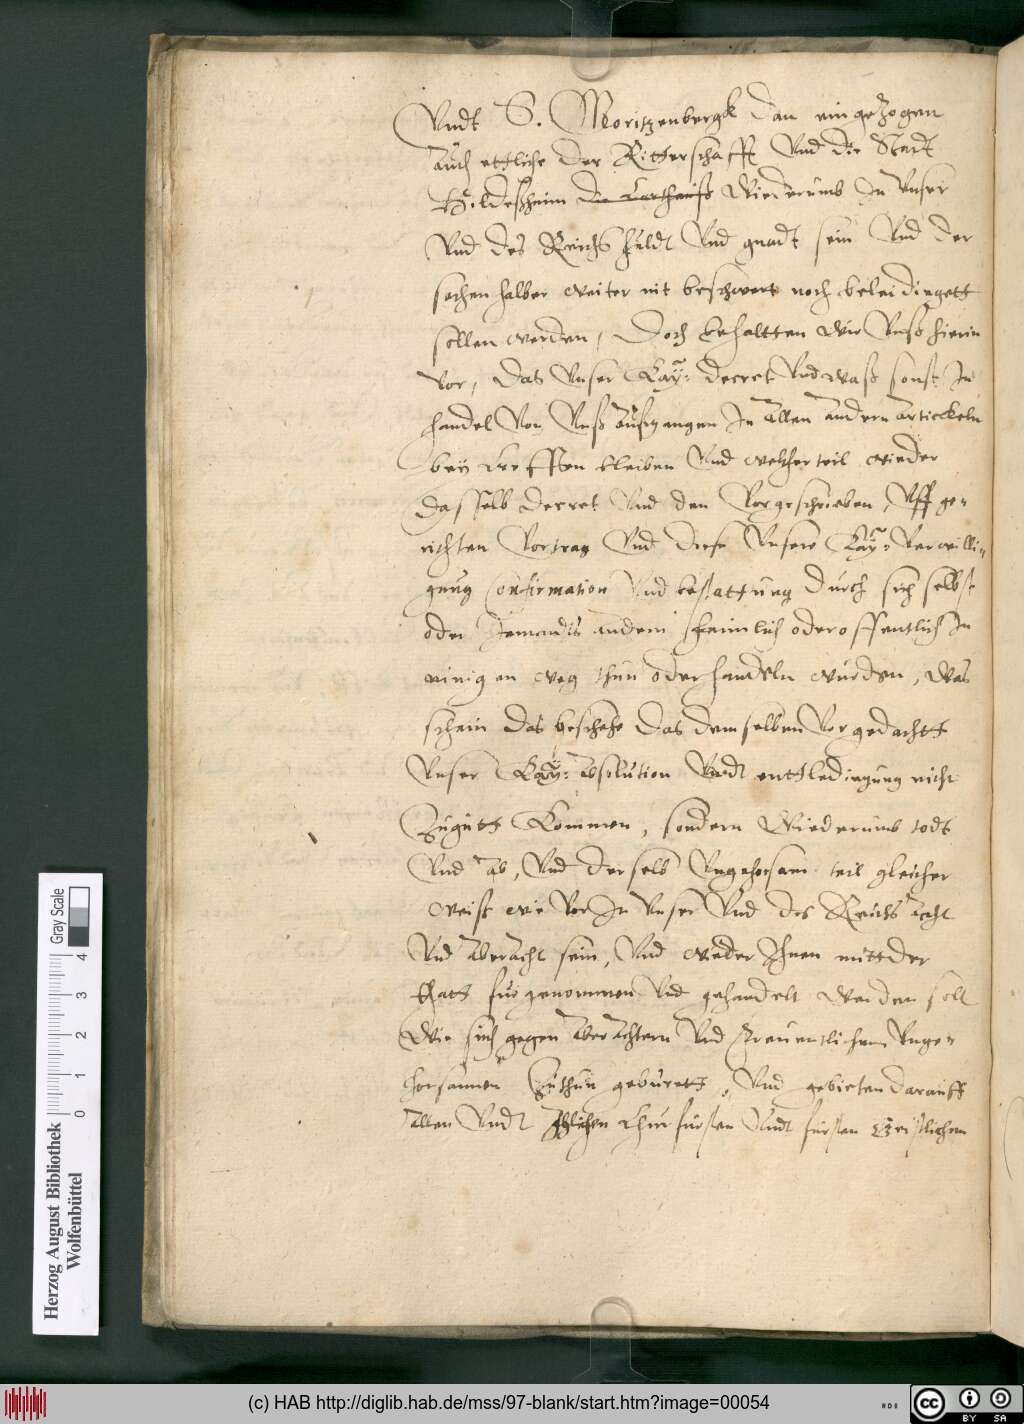 Vndt S. Moritzenbergk dan eingezogen
auch ettliche der Ritterschafft Vnd die Stadt
Hildeßheim die Carthauß Wiederumb In Vnser
Vnd des Reichs huldt Vnd gnadt sein Vnd der
sachen halber weiter nit beschwert noch beleidingett
sollen werden, Doch behaltten wir Vnß hierin
Vor, Das Vnser Kay: decret Vnd waß sonst In
handel Von Vnß außgangen In allen andern artickeln
bey Crefften bleiben Vnd welcher teil wieder
dasselb decret Vnd den Vorgeschrieben, Vff ge-
richten Vortrag Vnd diese Vnsere Kay: Verwilli-
gung Confirmation Vnd bestattung durch sich selbst
oder Jemandts andern heimlich oder offentlich In
einigen weg thun oder handeln wurden, Was
schein das beschehe Das demselben Vorgedachtt
Vnser Kay: absolution Vndt enttledingung nicht
Zugutt Kommen, sondern Wiederumb todt
Vnd ab, Vnd derselb Vngehorsam teil gleicher
Weiß wie Vor In Vnser Vnd des Reichs acht
Vnd aberacht sein, Vnd wieder Ihnen mitt der
thatt furgenommen Vnd gehandelt werden soll
Wie sich gegen aberachtern Vnd freuentlichen Vnge-
horsamen Zuthun geburett, Vnd gebieten darauff
allen Vndt Churfursten Vndt fursten Geistlichen
Herzog August Bibliothek
Wolfenbüttel
0 1 2 3 4
Gray Scale
(c) HAB http://diglib.hab.de/mss/97-blank/start.htm?image=00054
cc BY SA